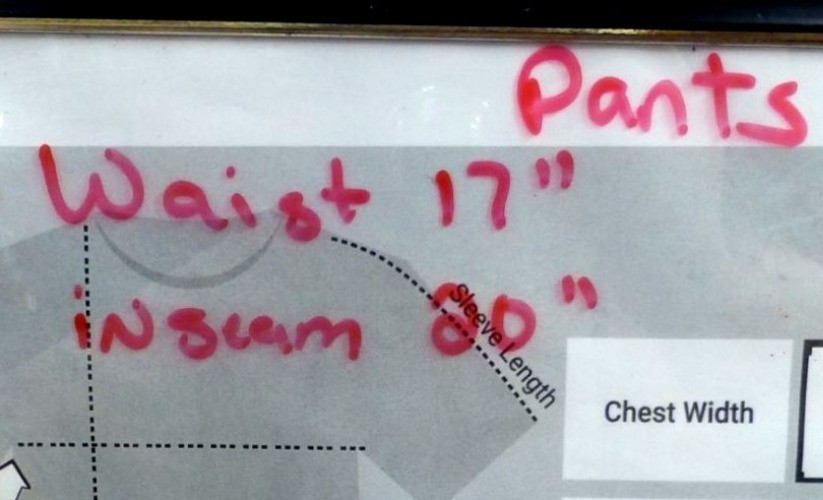 Pants
Waist 17"
inseam 20"
Sleeve Length
Chest Width